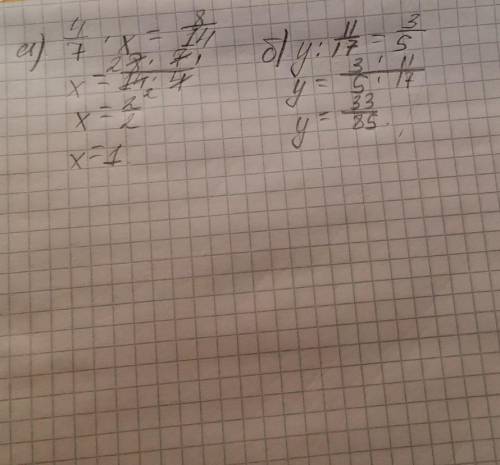 а) 4/7 · x = 8/14
x = 8/14 · 7/4
x = 2/2
x = 1
б) y : 11/17 = 3/5
y = 3/5 · 11/17
y = 33/85